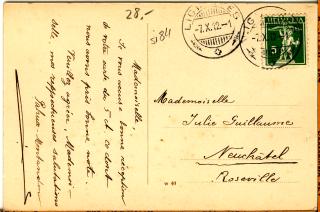 28.-
5184
LIG
-7.X.12.-1
HELVETIA
5
Mademoiselle,
Je vous accuse bonne réception
de votre carte du 5 ct dont
nous avons pris bonne note.
Veuillez agréer, Mademoi-
selle, mes respectueuses salutations
Mademoiselle
Julie Guillaume
Neuchâtel
Roseville